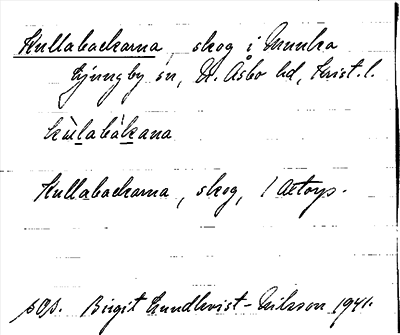 Kullabackarna, skog i Munka
Ljungby sn, N. Åsbo hd, Krist. l.
kùlabàkana
Kullabackarna, skog, 1 Aetorp.
sOs. Birgit Lundkvist-Nilsson 1941.